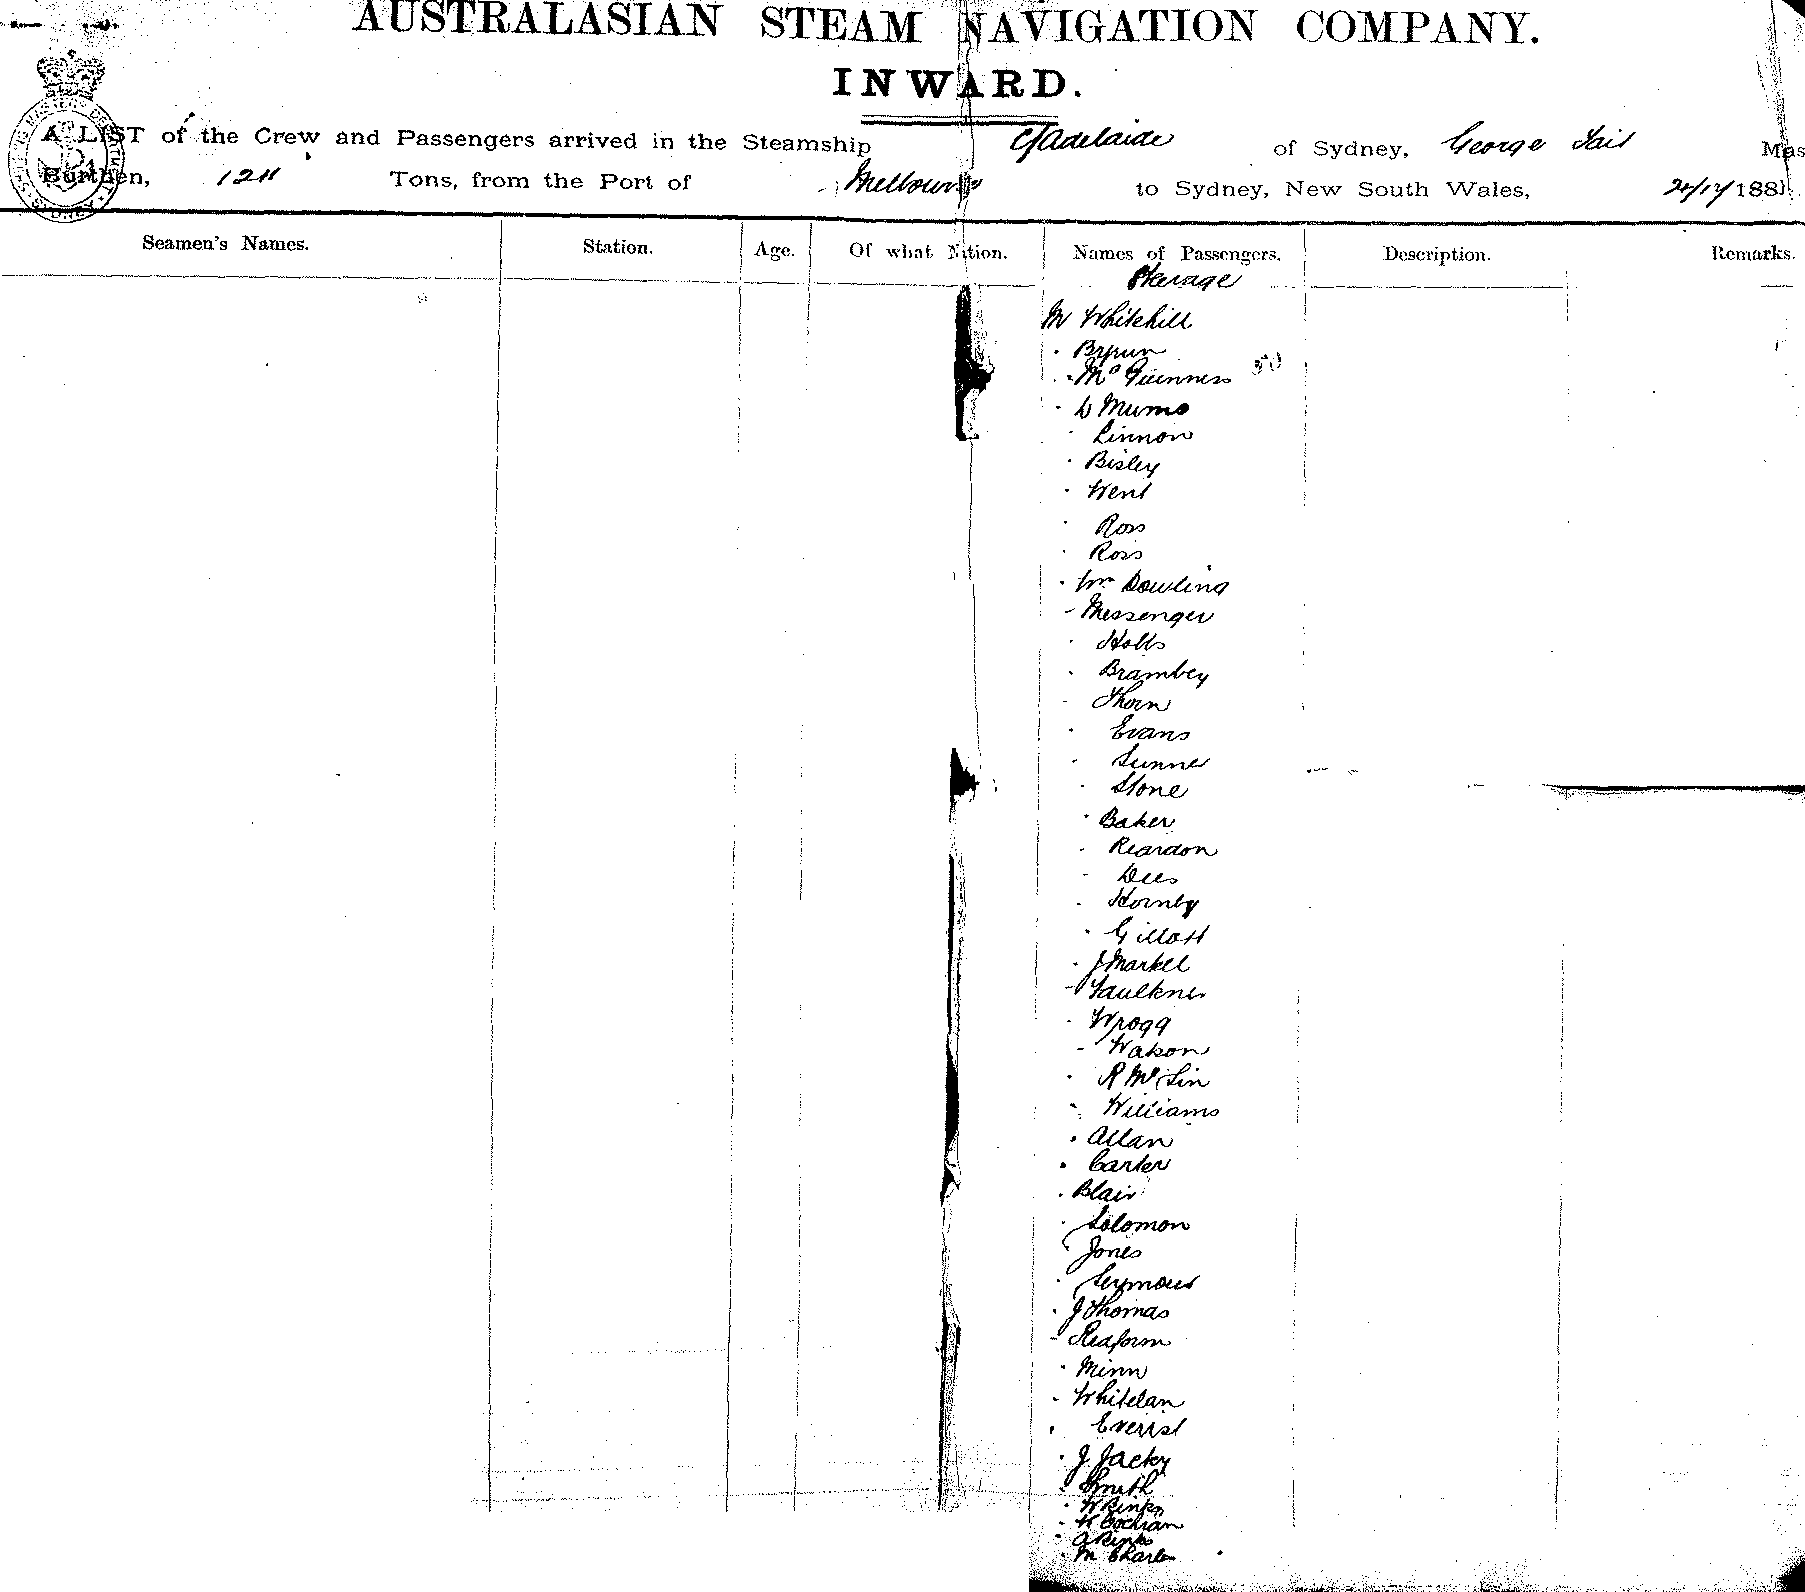 AUSTRALASIAN STEAM NAVIGATION COMPANY.
INWARD.
A LIST of the Crew and Passengers arrived in the Steamship C/Adelaide of Sydney, George Tait Mas
Burthen, 1211 Tons, from the Port of Melbourne to Sydney, New South Wales, 188
Seamen's Names. Station. Age. Of what Nation. Names of Passengers. Description. Remarks.
Sterage
Mr Whitehill
50
Mc Guinness
D Mumo
Linnon
Bisley
Went
Ross
Ross
Wm Dowling
Messenger
Hobbs
Brambey
Thorn
Evans
Stone
Baker
Reardon
Dees
Hornby
Gillott
J Markel
Faulkner
Wragg
Watson
Williams
Allan
Carter
Blair
Solomon
Jones
Seymour
J Thomas
Minn
Whitelan
Everist
J Jacky
Smith
W Binks
W Cochran
M Charles